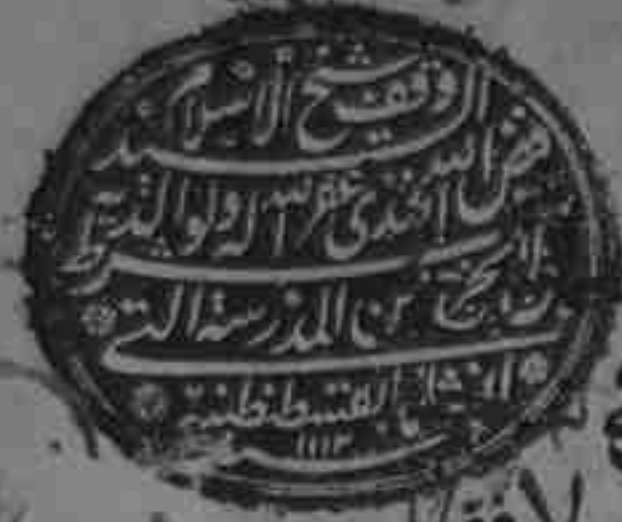 وقف شيخ الاسلام
السيد
فيض الله افندى غفر الله له ولوالديه
بشرط
ان لا يخرج من المدرسة التى
انشاها بالقسطنطينية
سنة ١١١٣